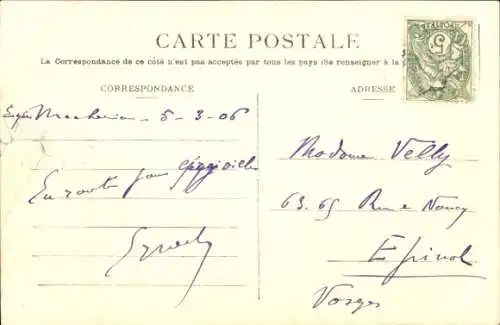 CARTE POSTALE
La Correspondance de ce côté n'est pas acceptée par tous les pays (Se renseigner à la
CORRESPONDANCE
ADRESSE
5-3-06
En route pour
Madame Velly
63.65 Rue de Nancy
Epinal
Vosges